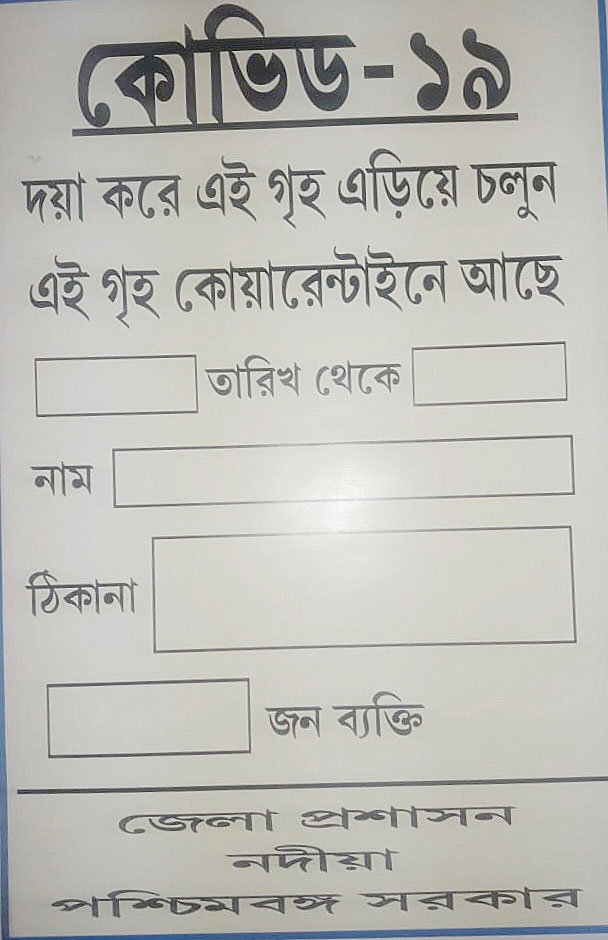 কোভিড-১৯
দয়া করে এই গৃহ এড়িয়ে চলুন
এই গৃহ কোয়ারেন্টাইনে আছে
তারিখ থেকে
নাম
ঠিকানা
জন ব্যক্তি
জেলা প্রশাসন
নদীয়া
পশ্চিমবঙ্গ সরকার